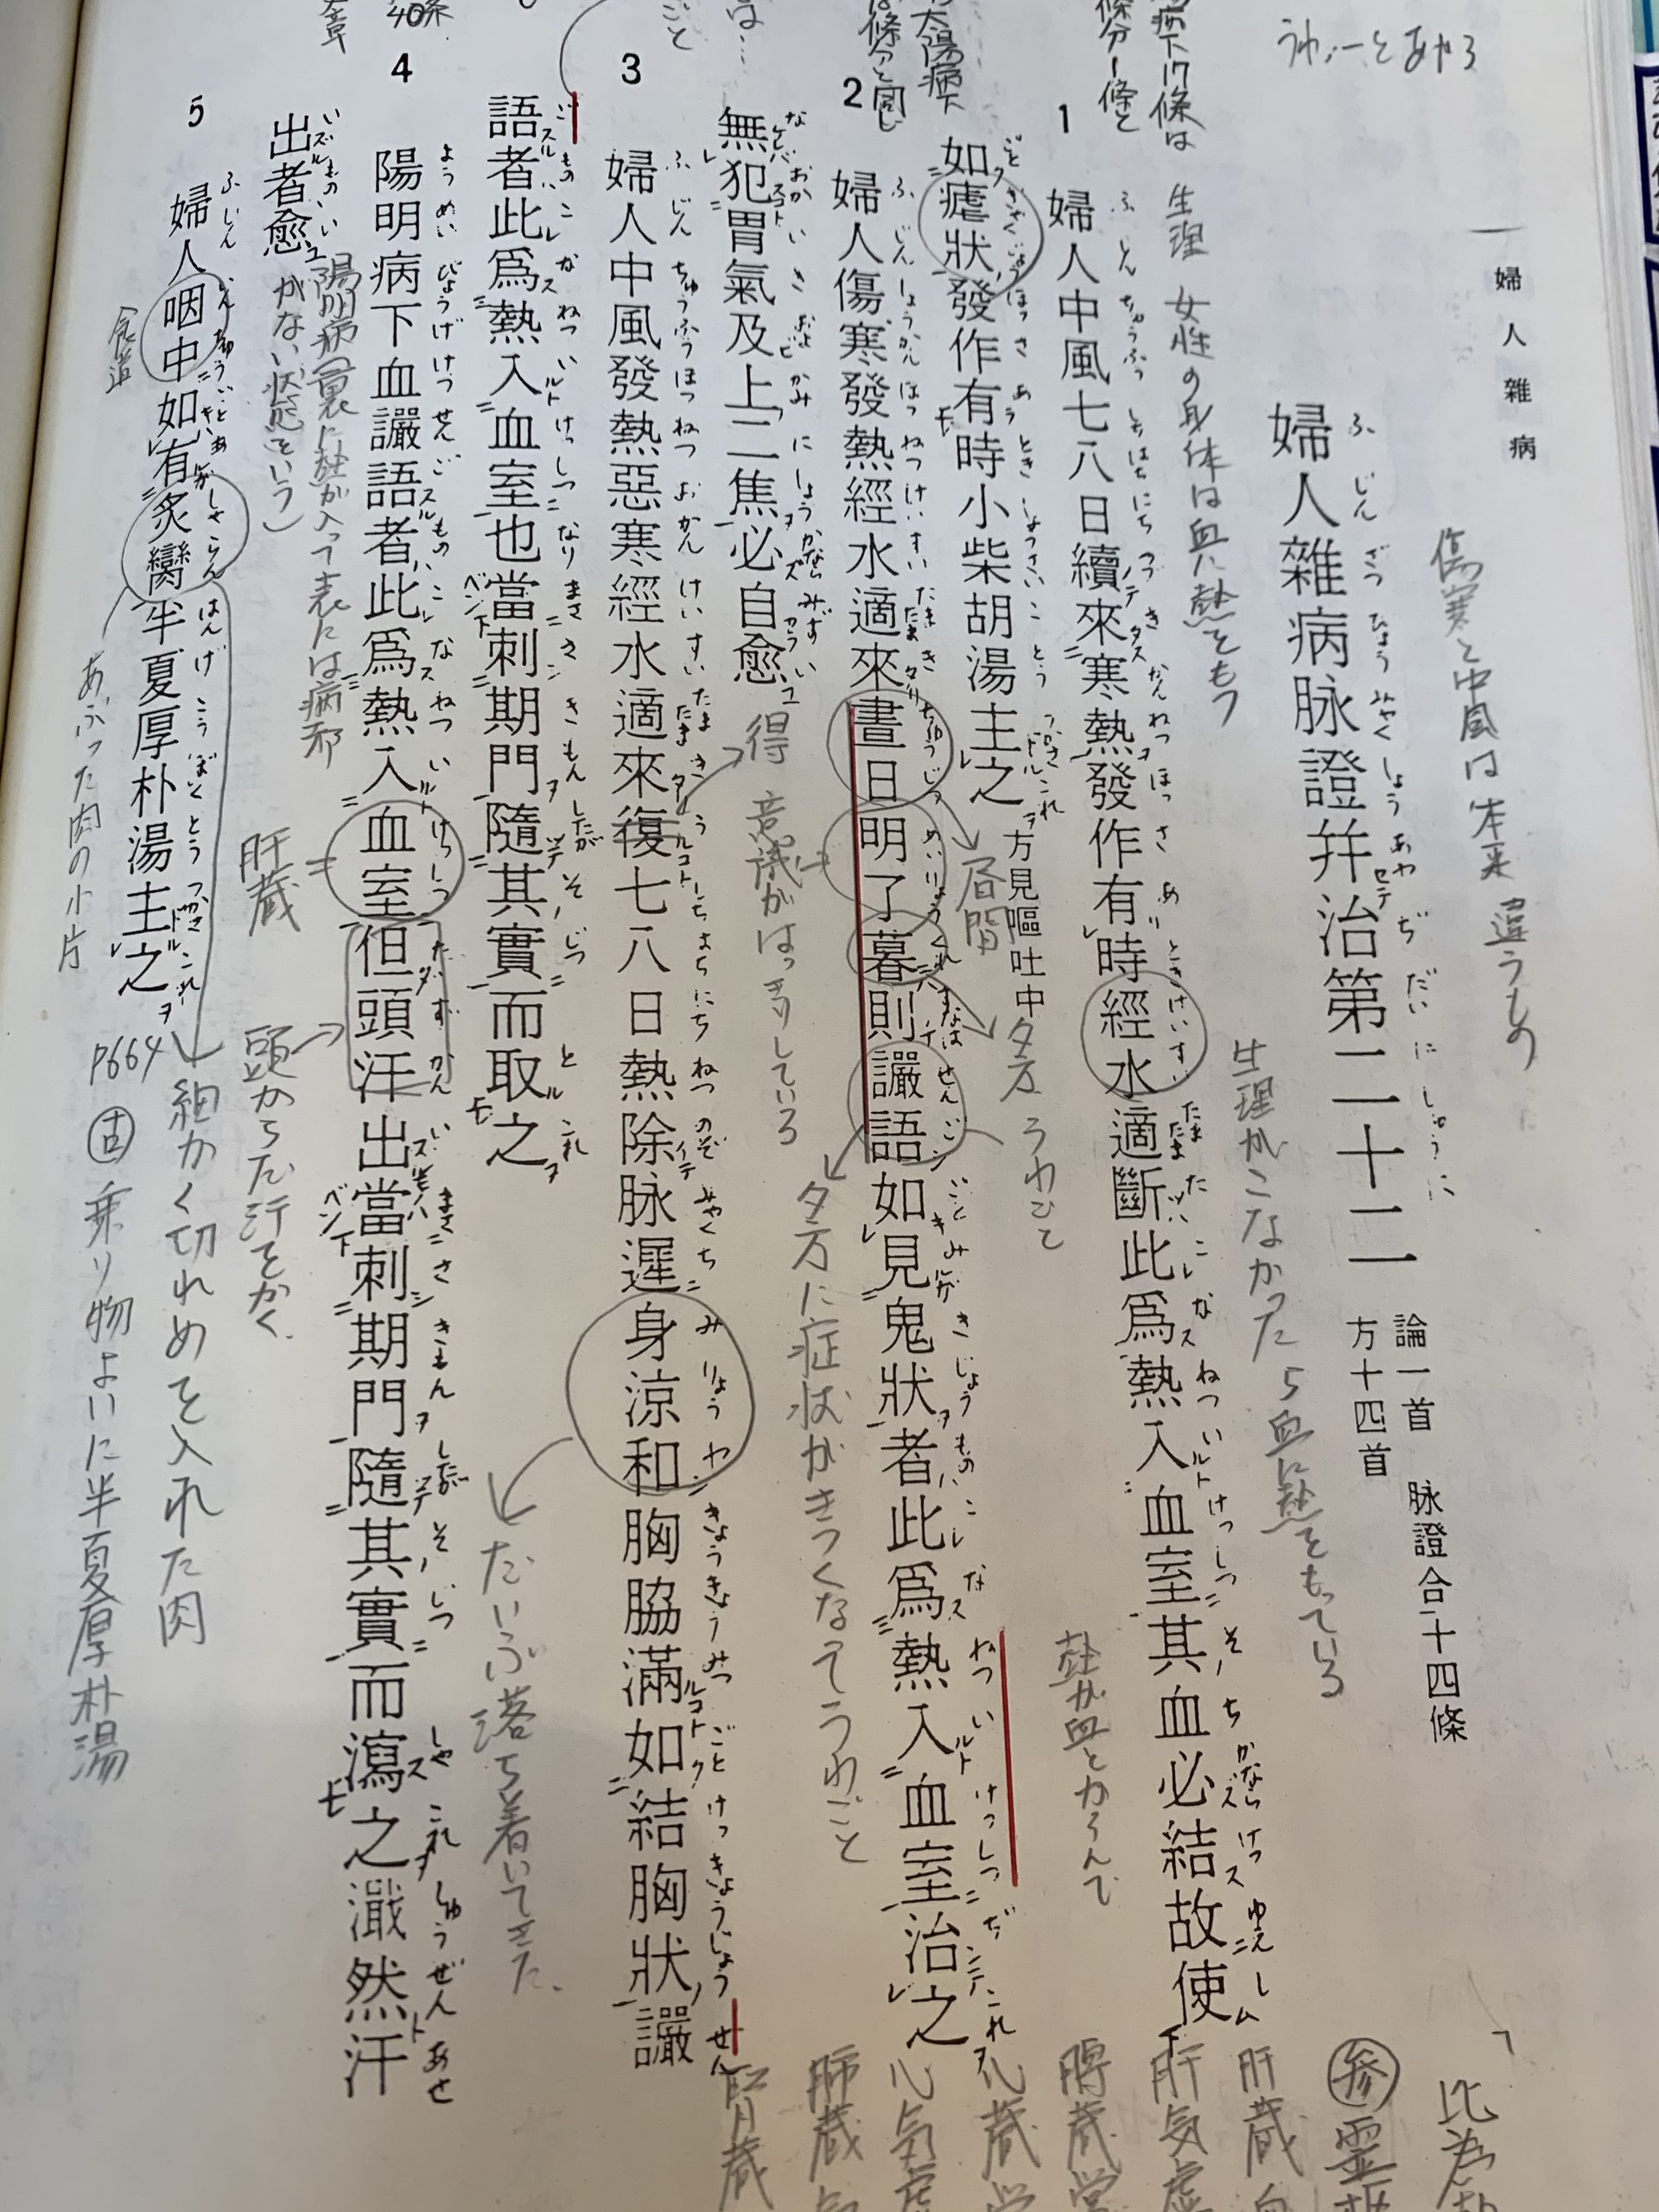 婦人雜病
婦人雜病脉證幷治第二十二
論一首　脉證合十四條
方十四首
1
婦人中風七八日續來寒熱發作有時經水適斷此爲熱入血室其血必結故使
如瘧狀發作有時小柴胡湯主之
方見嘔吐中
2
婦人傷寒發熱經水適來晝日明了暮則讝語如見鬼狀者此爲熱入血室治之
無犯胃氣及上二焦必自愈
3
婦人中風發熱惡寒經水適來復七八日熱除脉遲身涼和胸脇滿如結胸狀讝
語者此爲熱入血室也當刺期門隨其實而取之
4
陽明病下血讝語者此爲熱入血室但頭汗出當刺期門隨其實而瀉之濈然汗
出者愈
5
婦人咽中如有炙臠半夏厚朴湯主之
傷寒と中風は本来違うもの
生理　女性の身体は血に熱をもつ
生理がこなかったら血に熱をもっている
熱が血とからんで
昼間
夕方　うわごと
夕方に症状がきつくなてうわごと
得
意識がはっきりしている
だいぶ落ち着いてきた
陽明病(裏に熱が入って表には病邪
がない状態という)
肝蔵
頭からだ汗をかく
食道
あぶった肉の小片
細かく切れめを入れた肉
P664
古 乗り物よいに半夏厚朴湯
太陽病下
條分と同じ
病下17條は
條分1條と
40條
参
肝蔵
肝気虚
脾蔵
心蔵
心気虚
肺蔵
腎蔵